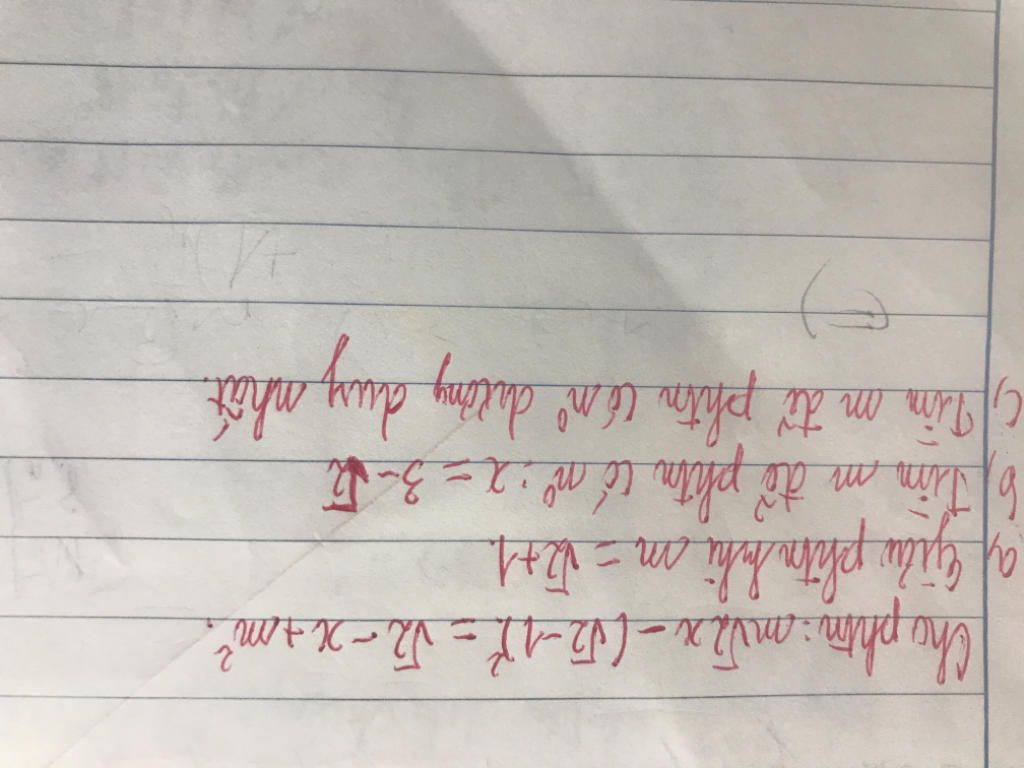 Cho phtn: m√2x - (√2-1)² = √2 - x + m².
a, Giải phtn khi m = √2+1.
b, Tìm m để phtn có n⁰: x = 3-√2
c, Tìm m để phtn có n⁰ dương duy nhất.